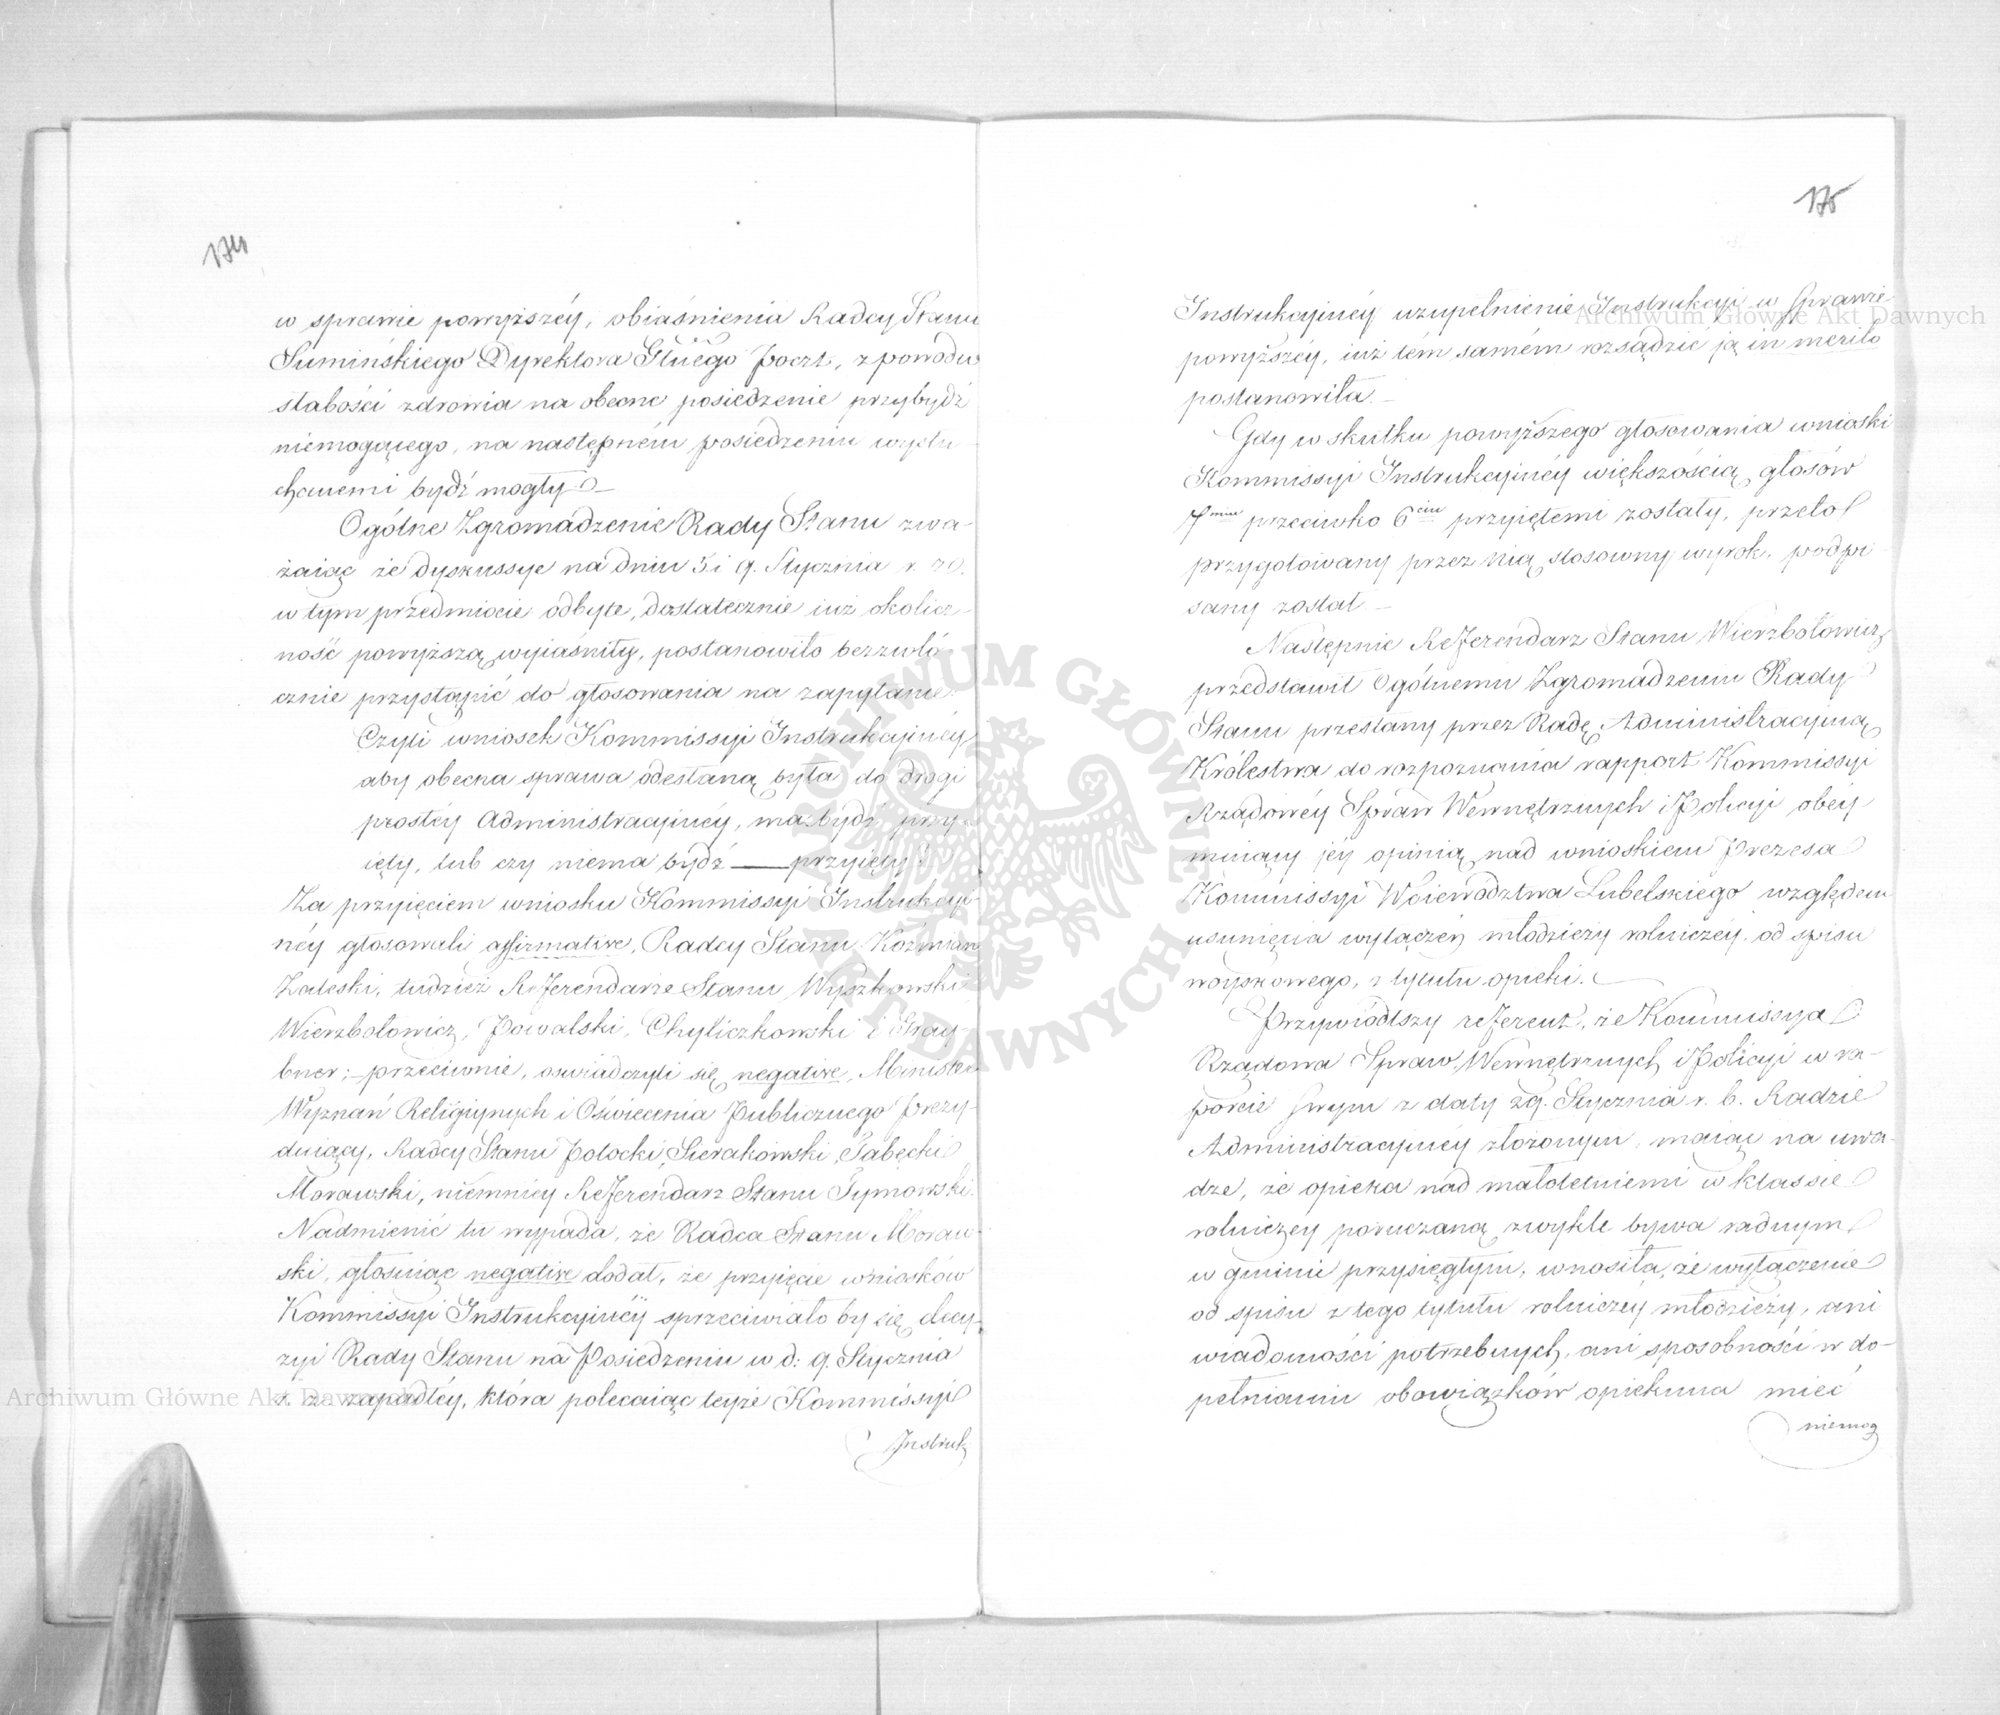 174
w sprawie powyższéy, obiaśnienia Radcy Stanu
Sumińskiego Dyrektora Głuego Poczt, z powodu
słabości zdrowia na obecne posiedzenie przybydź
niemogącego, na następném posiedzeniu wysłu-
chanemi bydź mogły.
Ogólne Zgromadzenie Rady Stanu zwa-
żaiąc że dyskussye na dniu 5 i 9. Stycznia r.
w tym przedmiocie odbyte, dostatecznie iuż okolicz-
ność powyższą wyiaśniły, postanowiło bezzwło-
cznie przystąpić do głosowania na zapytanie:
Czyli wniosek Kommissyi Instrukcyinéy
aby obecna sprawa odesłaną była do drogi
prostéy Administracyinéy, ma bydź przy-
ięty, lub czy niema bydź — przyięty?
Za przyięciem wniosku Kommissyi Instrukcyi-
néy głosowali affirmative, Radcy Stanu Koźmian
Zaleski, tudzież Referendarze Stanu Wyszkowski
Wierzbołowicz, Powalski, Chyliczkowski i Gray-
bner; – przeciwnie, oświadczyli się negative, Minister
Wyznań Religiynych i Oświecenia Publicznego Prezy-
duiący, Radcy Stanu Potocki, Sierakowski, Tabęcki
Morawski, niemniéy Referendarz Stanu Tymowski.
Nadmienić tu wypada, że Radca Stanu Moraw-
ski, głosuiąc negative dodał, że przyięcie wniosków
Kommissyi Instrukcyinéy sprzeciwiało by się decy-
zyi Rady Stanu na Posiedzeniu w d: 9. Stycznia
zapadłéy, która polecaiąc teyże Kommissyi
Instruk
175
Instrukcyinéy uzupełnienie Instrukcyi w sprawie
powyższéy, iuż tém samém rozsądzić ją in merito
postanowiła. –
Gdy w skutku powyższego głosowania wnioski
Kommissyi Instrukcyinéy większością głosów
7miu przeciwko 6ciu przyiętemi zostały, przeto
przygotowany przez nią stosowny wyrok, podpi-
sany został –
Następnie Referendarz Stanu Wierzbołowicz
przedstawił Ogólnemu Zgromadzeniu Rady
Stanu przesłany przez Radę Administracyiną
Królestwa do rozpoznania rapport Kommissyi
Rządowéy Spraw Wewnętrznych i Policyi obey-
muiący jéy opinią nad wnioskiem Prezesa
Kommissyi Woiewództwa Lubelskiego względem
usunięcia wyłączeń młodzieży rolniczéy od spisu
woyskowego, z tytułu opieki. –
Przywiódłszy referent, że Kommissya
Rządowa Spraw Wewnętrznych i Policyi w ra-
porcie swym z daty 29. Stycznia r. b. Radzie
Administracyinéy złożonym, maiąc na uwa-
dze, że opieka nad małoletniemi w klassie
rolniczey poruczaną zwykle bywa radnym
w gminie przysięgłym, wnosiła, że wyłączenie
od spisu z tego tytułu rolniczéy młodzieży, ani
wiadomości potrzebnych, ani sposobności w do-
pełnianiu obowiązków opiekuna mieć
niemog
Archiwum Główne Akt Dawnych
Archiwum Główne Akt Dawnych
ARCHIWUM GŁÓWNE AKT DAWNYCH